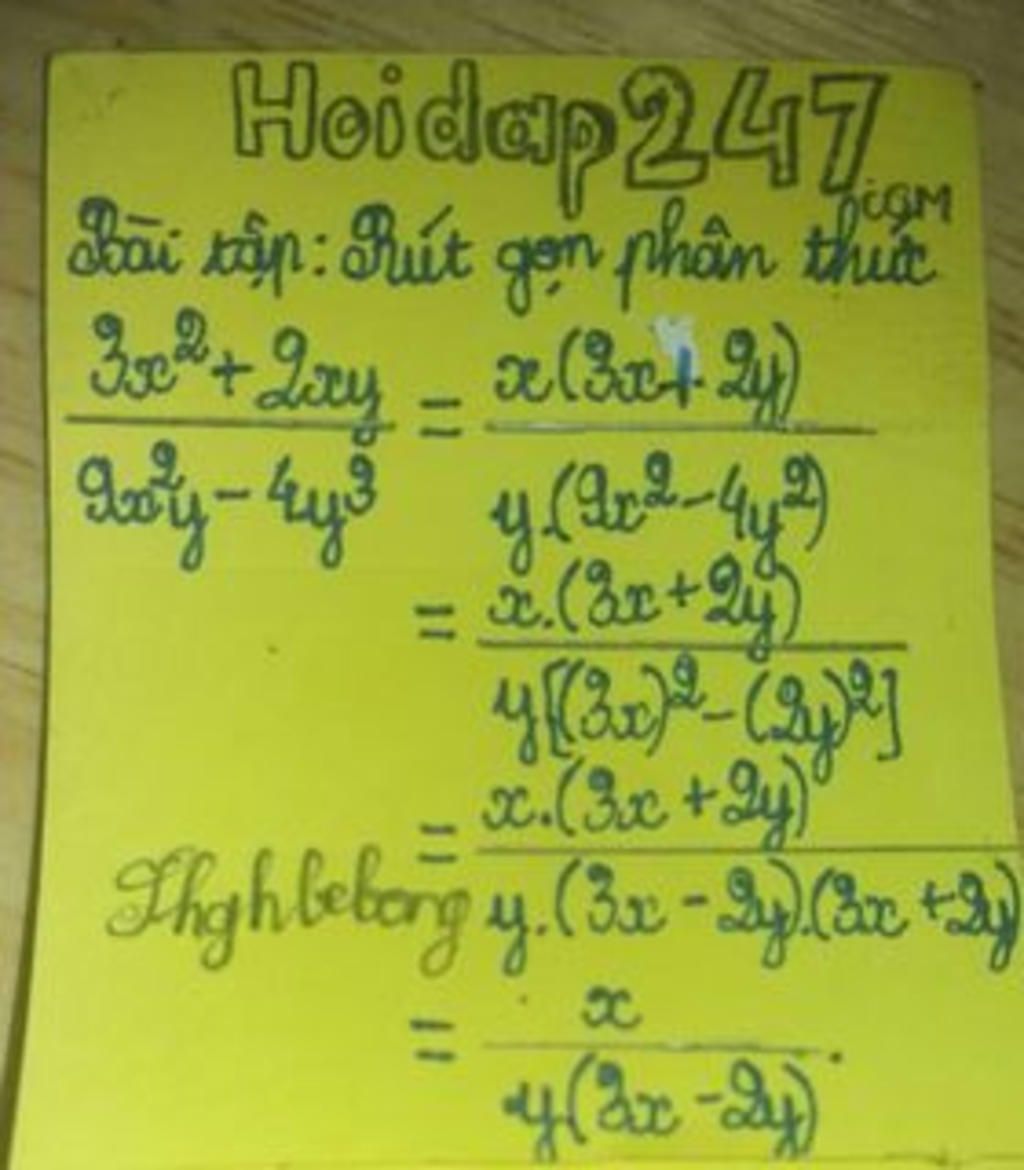 Hoidap247.com
Bài tập: Rút gọn phân thức
3x²+2xy / 9x²y-4y³ = x(3x+2y) / y.(9x²-4y²)
= x.(3x+2y) / y[(3x)²-(2y)²]
= x.(3x+2y) / y.(3x-2y).(3x+2y)
Thghbebong
= x / y.(3x-2y).